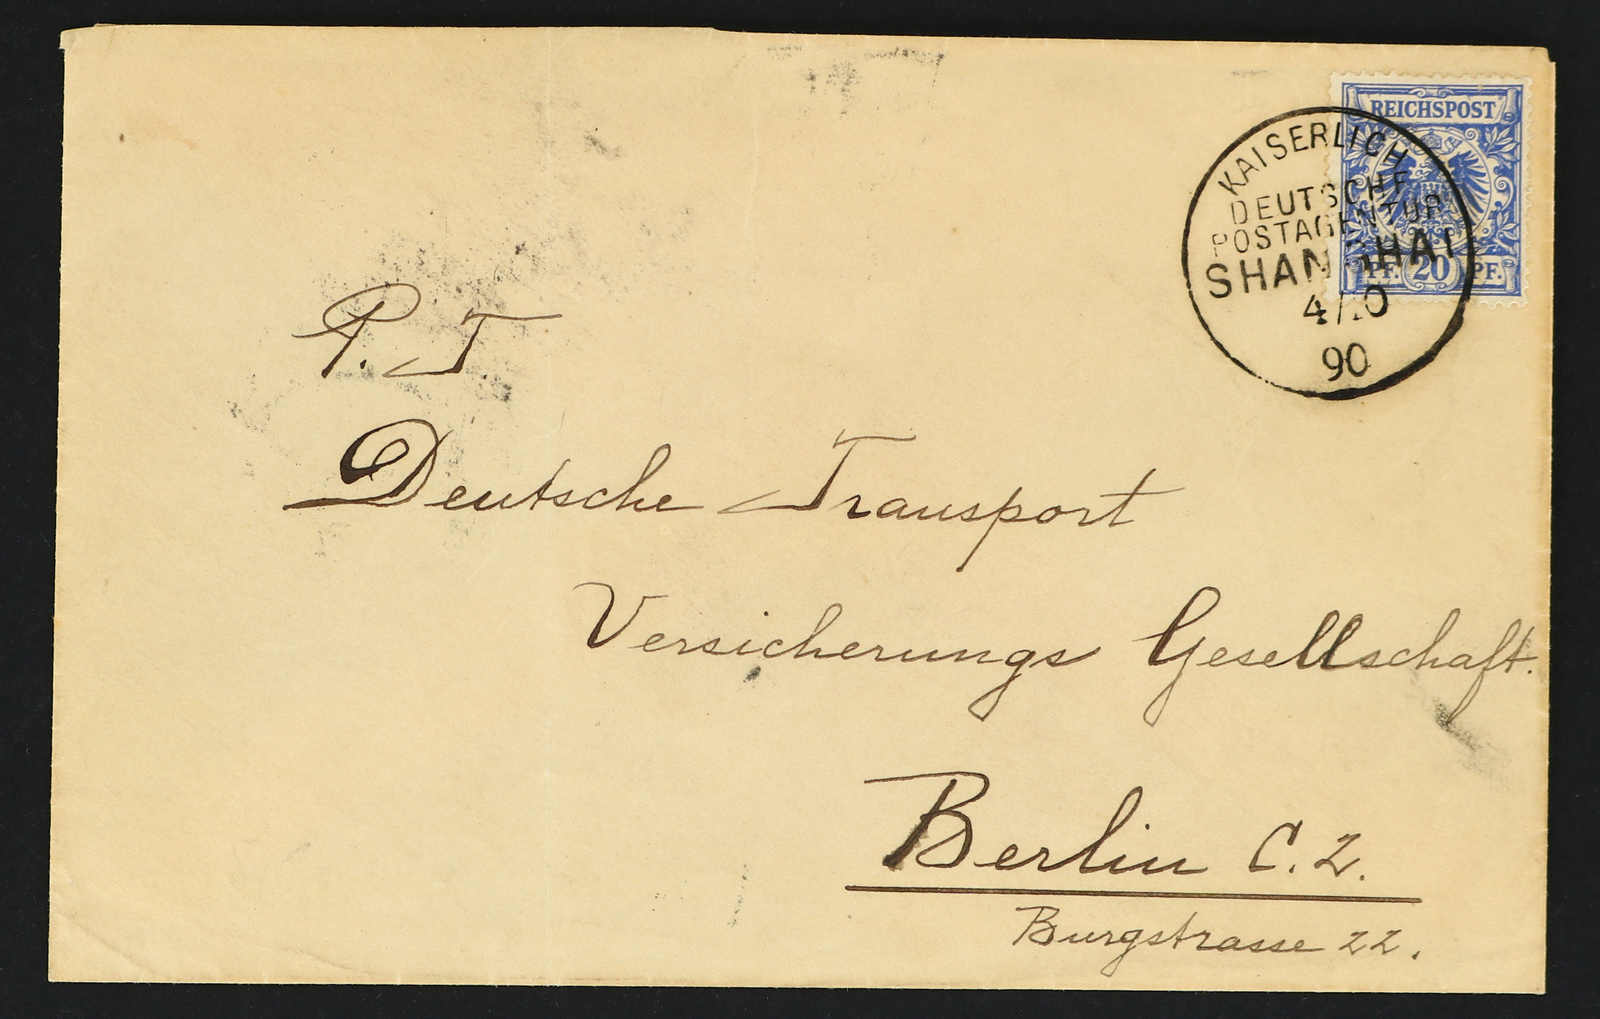 REICHSPOST
PF. 20 PF.
KAISERLICH
DEUTSCHE
POSTAGENTUR
SHANGHAI
4/10
90
P. T.
Deutsche Transport
Versicherungs Gesellschaft.
Berlin C. 2.
Burgstrasse 22.